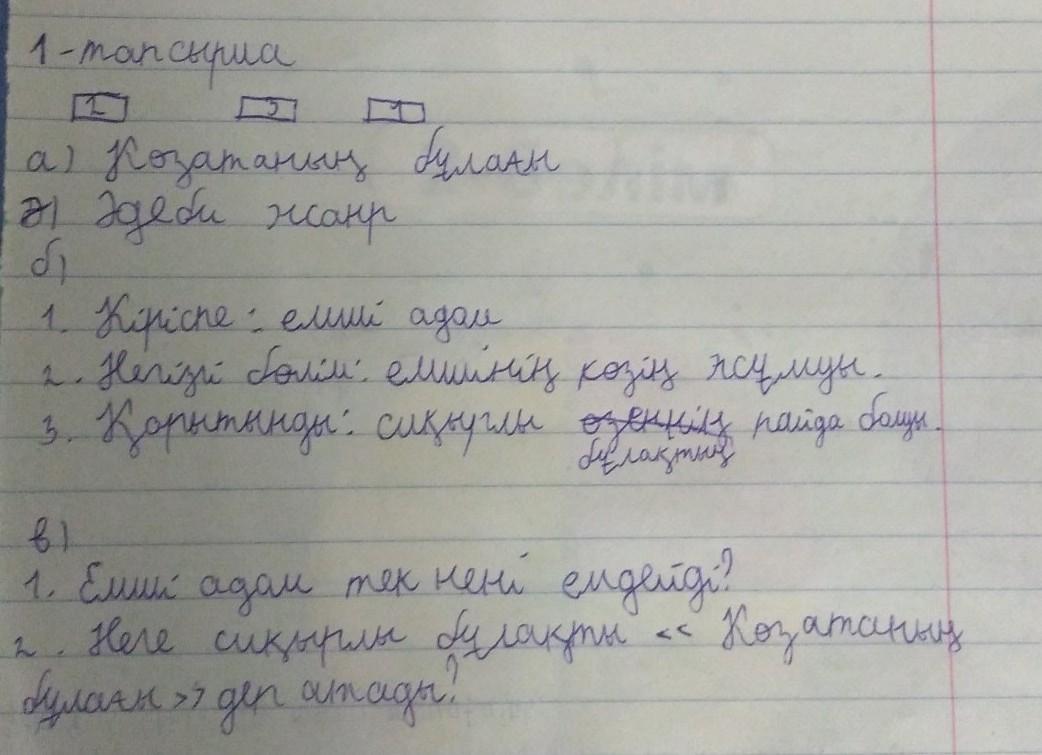 1-тапсырма
2 3 1
а) Көзатаның бұлағы
ә) Әдеби жанр
б)
1. Кіріспе: емші адам
2. Негізгі бөлім: емшінің көзің жұмуы.
3. Қорытынды: сиқырлы өзеннің пайда болуы.
бұлақтың
в)
1. Емші адам тек нені емдейді?
2. Неге сиқырлы бұлақты << Көзатаның
бұлағы >> деп атады?